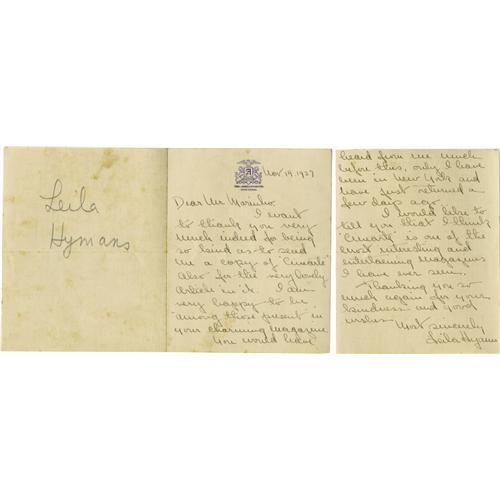 Leila
Hymans
Nov 19. 1927
Dear Mr Marinho.
I want
to thank you very
much indeed for being
so kind as to send
me a copy of "Cinearte"
Also for the very lovely
article in it. I am
very happy to be
"among those present" in
your charming magazine
You would have
heard from me much
before this, only I have
been in New York and
have just returned a
few days ago.
I would like to
tell you that I think
"Cinearte" is one of the
most interesting and
entertaining magazines
I have ever seen.
Thanking you so
much again for your
kindness and good
wishes
Most sincerely
Leila Hyams